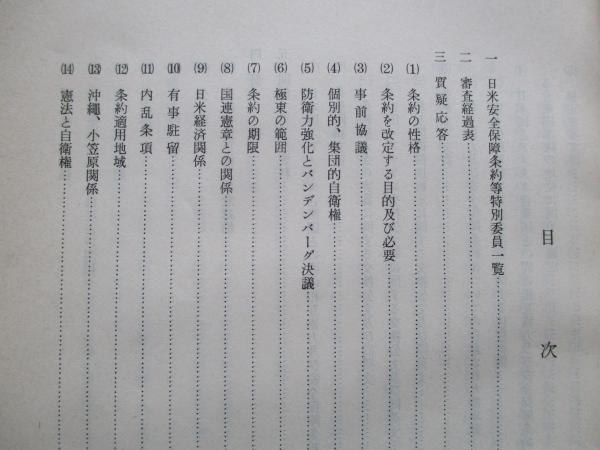 目次
一 日米安全保障条約等特別委員一覧
二 審査経過表
三 質疑応答
(1) 条約の性格
(2) 条約を改定する目的及び必要
(3) 事前協議
(4) 個別的、集団的自衛権
(5) 防衛力強化とバンデンバーグ決議
(6) 極東の範囲
(7) 条約の期限
(8) 国連憲章との関係
(9) 日米経済関係
(10) 有事駐留
(11) 内乱条項
(12) 条約適用地域
(13) 沖縄、小笠原関係
(14) 憲法と自衛権